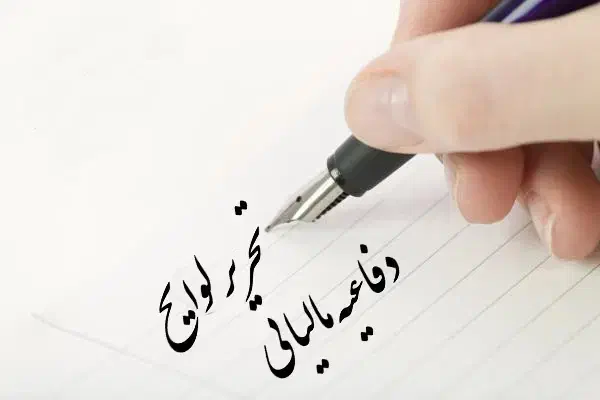 تحریر لوایح
دفاعیه مالیاتی